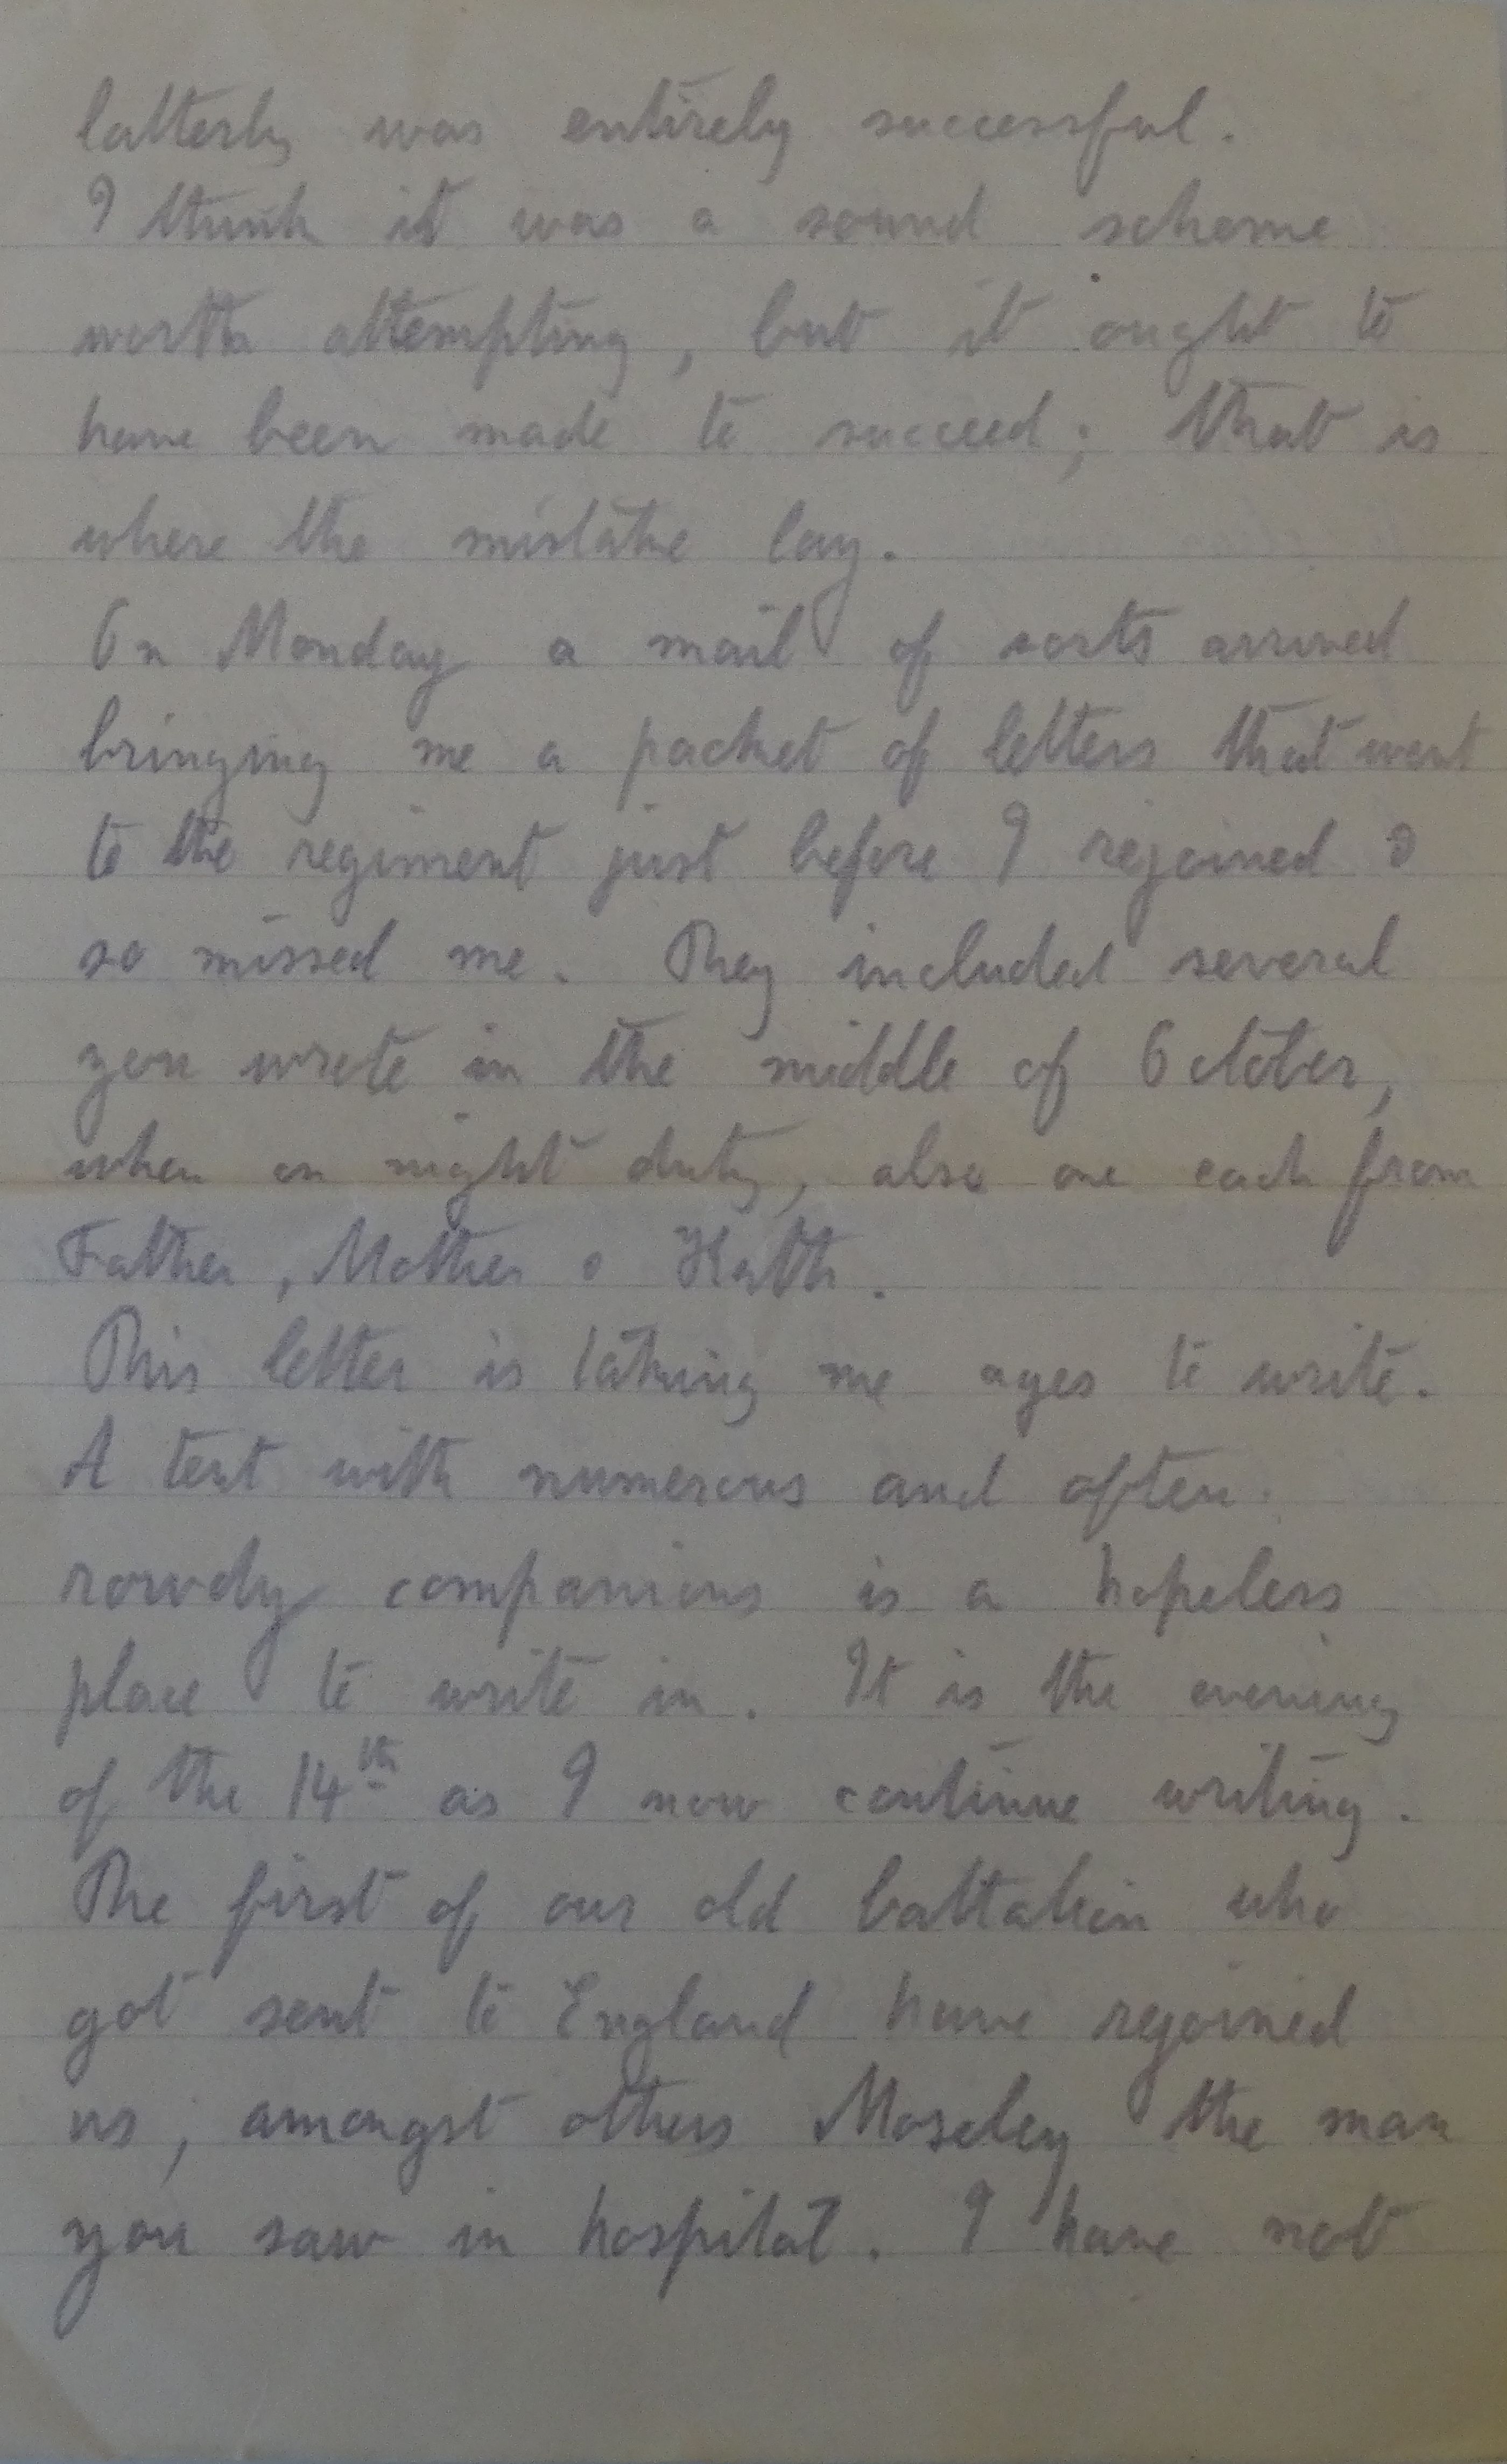 latterly was entirely successful.
I think it was a sound scheme
worth attempting, but it ought to
have been made to succeed; that is
where the mistake lay.
On Monday a mail of sorts arrived
bringing me a packet of letters that went
to the regiment just before I rejoined &
so missed me. They included several
you wrote in the middle of October,
when on night duty, also one each from
Father, Mother & Kath.
This letter is taking me ages to write.
A tent with numerous and often
rowdy companions is a hopeless
place to write in. It is the evening
of the 14th as I now continue writing.
The first of our old battalion who
got sent to England have rejoined
us, amongst others Moseley the man
you saw in hospital. I have not